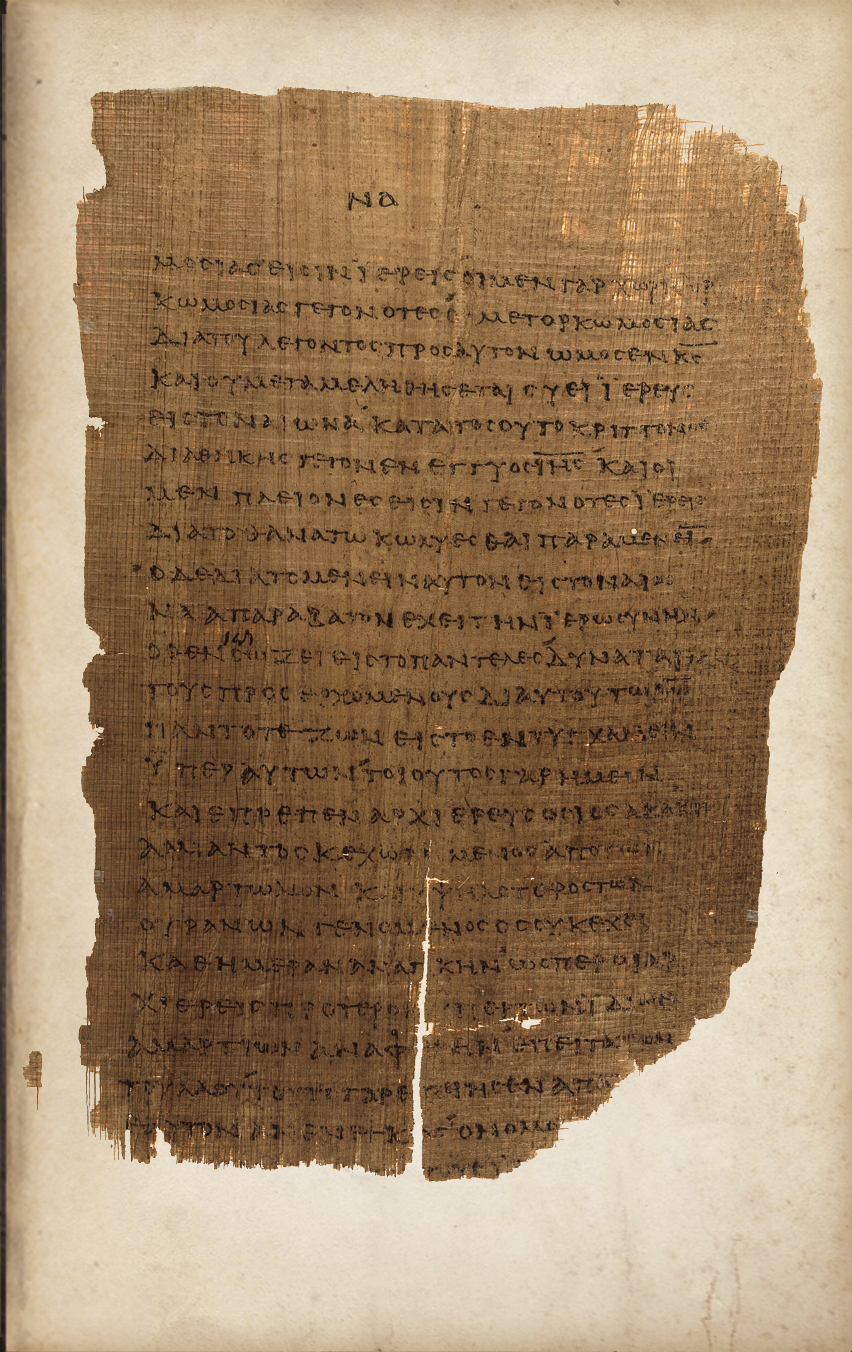 ΝΑ
ΜΟΣΙΑΣ ΕΙΣΙΝ ΪΕΡΕΙΣ ΟΙ ΜΕΝ ΓΑΡ ΧΩΡΙΣ
ΚΩΜΟΣΙΑΣ ΓΕΓΟΝΟΤΕΣ Ο ΜΕΤ ΟΡΚΩΜΟΣΙΑΣ
ΔΙΑ ΤΟΥ ΛΕΓΟΝΤΟΣ ΠΡΟΣ ΑΥΤΟΝ ΩΜΟΣΕΝ Κ̅Σ̅
ΚΑΙ ΟΥ ΜΕΤΑΜΕΛΗΘΗΣΕΤΑΙ ΣΥ ΕΙ ΪΕΡΕΥΣ
ΕΙΣ ΤΟΝ ΑΙΩΝΑ ΚΑΤΑ ΤΟΣΟΥΤΟ ΚΡΙΤΤΟΝΟΣ
ΔΙΑΘΗΚΗΣ ΓΕΓΟΝΕΝ ΕΓΓΥΟΣ Ι̅Η̅Σ̅ ΚΑΙ ΟΙ
ΜΕΝ ΠΛΕΙΟΝΕΣ ΕΙΣΙΝ ΓΕΓΟΝΟΤΕΣ ΪΕΡΕΙΣ
ΔΙΑ ΤΟ ΘΑΝΑΤΩ ΚΩΛΥΕΣΘΑΙ ΠΑΡΑΜΕΝΕΙ̅
Ο ΔΕ ΔΙΑ ΤΟ ΜΕΝΕΙΝ ΑΥΤΟΝ ΕΙΣ ΤΟΝ ΑΙΩ
ΝΑ ΑΠΑΡΑΒΑΤΟΝ ΕΧΕΙ ΤΗΝ ΪΕΡΩΣΥΝΗΝ
ΟΘΕΝ ΣΩΖΕΙ ΕΙΣ ΤΟ ΠΑΝΤΕΛΕΣ ΔΥΝΑΤΑΙ
ΤΟΥΣ ΠΡΟΣΕΡΧΟΜΕΝΟΥΣ ΔΙ ΑΥΤΟΥ ΤΩ
ΠΑΝΤΟΤΕ ΖΩΝ ΕΙΣ ΤΟ ΕΝΤΥΓΧΑΝΕΙΝ
ΫΠΕΡ ΑΥΤΩΝ ΤΟΙΟΥΤΟΣ ΓΑΡ ΗΜΕΙΝ
ΚΑΙ ΕΠΡΕΠΕΝ ΑΡΧΙΕΡΕΥΣ ΟΣΙΟΣ ΑΚΑΚΟΣ
ΑΜΙΑΝΤΟΣ ΚΕΧΩΡΙ ΜΕΝΟΣ ΑΠΟ ΤΩΝ
ΑΜΑΡΤΩΛΩΝ Κ Ι ΥΨΗΛΟΤΕΡΟΣ ΤΩΝ
ΟΥΡΑΝΩΝ ΓΕΝΟΜΕΝΟΣ ΟΣ ΟΥΚ ΕΧΕΙ
ΚΑΘ ΗΜΕΡΑΝ ΑΝΑΓΚΗΝ ΩΣΠΕΡ ΟΙ ΑΡ
ΧΙΕΡΕΙΣ ΠΡΟΤΕΡΟ ΤΩΝ ΪΔΙΩΝ
ΑΜΑΡΤΙΩΝ ΑΝΑΦ ΕΠΕΙΤΑ ΤΩΝ
ΤΟΥ ΛΑΟΥ ΤΟΥΤΟ ΓΑΡ Ε ΠΟΙΗΣΕΝ
ΑΥΤΟΝ ΑΝΕΝΕΓΚ Ο ΝΟΜΟ